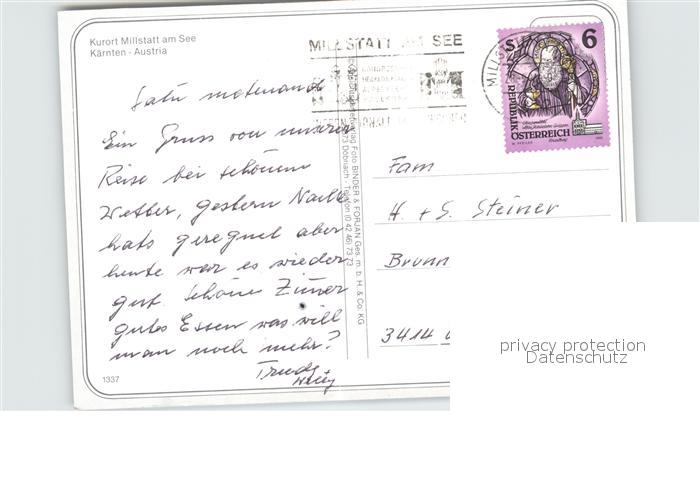 Kurort Millstatt am See
Kärnten - Austria
MILLSTATT AM SEE
MILLST
S 6
REPUBLIK
ÖSTERREICH
Salü motenand
Ein Gruss von unserer
Reise bei schönem
Wetter, gestern Nacht
hats geregnet aber
heute war es wieder
gut. Schöne Zimer
gutes Essen was will
man noch mehr?
Trudy
Foto BINDER & FORJAN Ges. m. b. H. & Co. KG
73 Döbriach - Telefon (0 42 46) 73 73
Fam
H. + S. Steiner
Brunn
3414
1337
privacy protection
Datenschutz